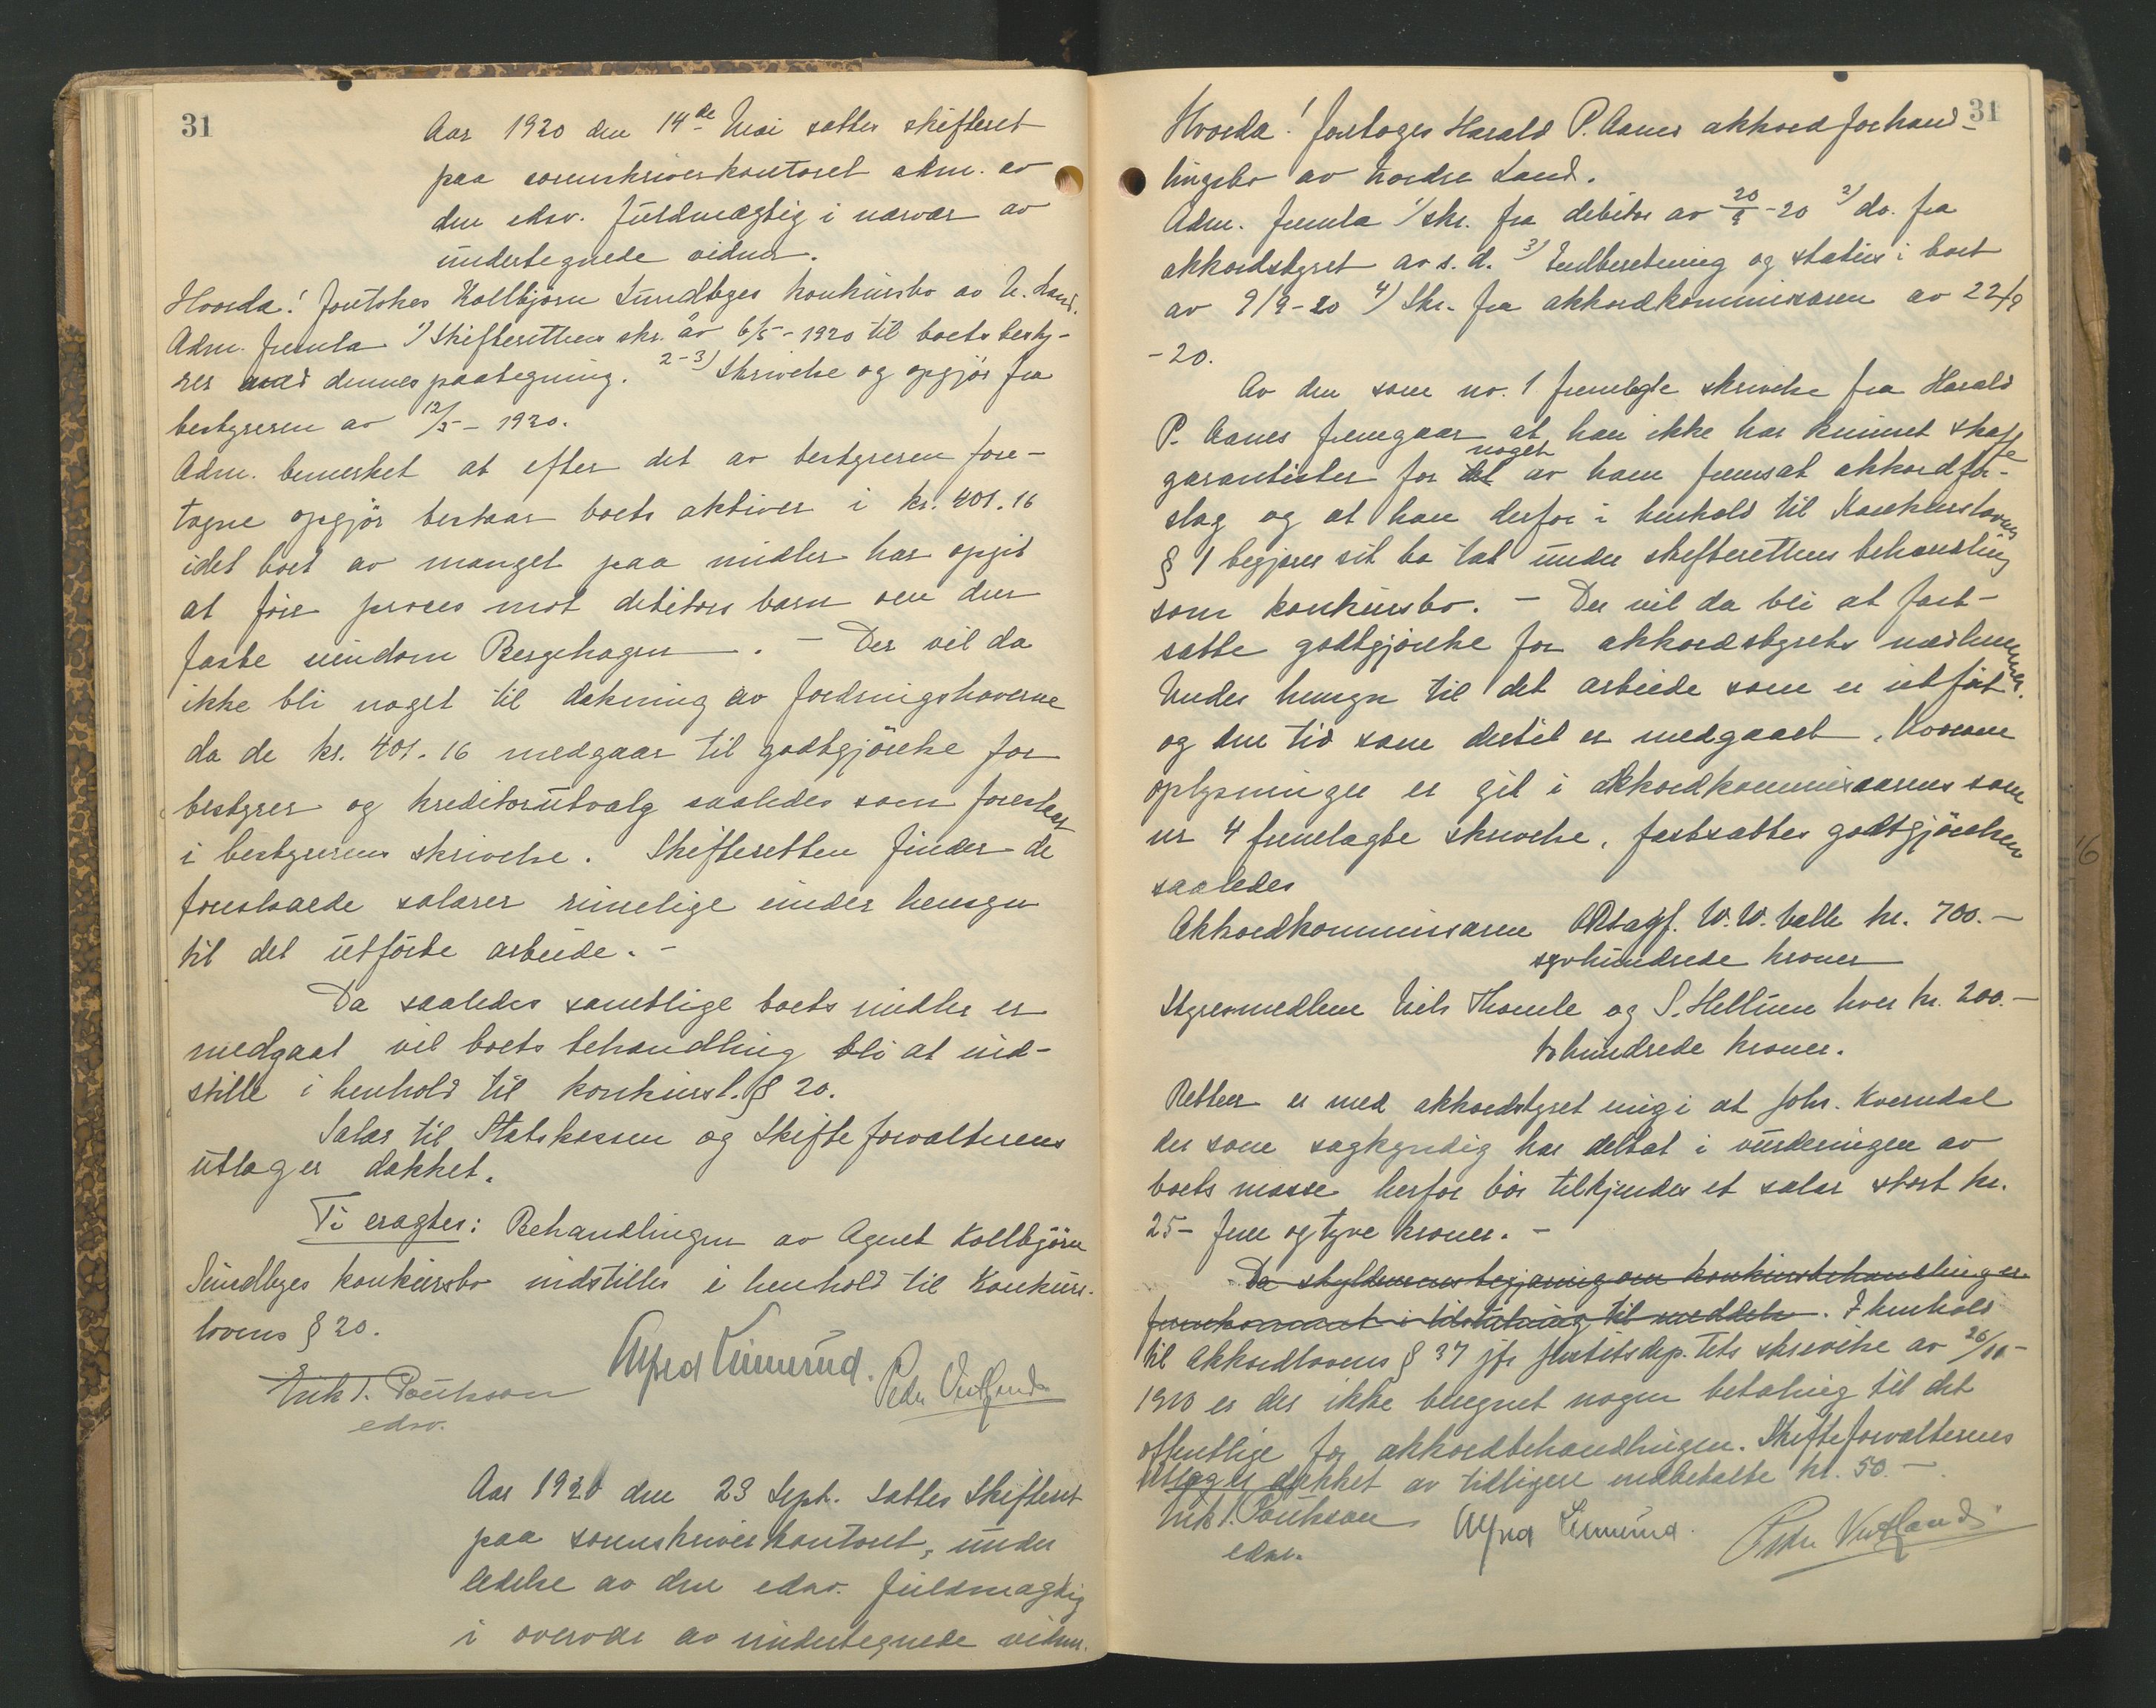 31
Aar 1920 den 14de Mai sattes skifteret
paa sorenskriverkontoret adm. av
den edsv. fuldmægtig i nærvær av
undertegnede vidner.
Hvorda! Foretokes Kolbjørn Sundbyes konkursbo av N. Land.
Adm. fremla 1) Skifterettens skr. av 6/5-1920 til boets besty-
rer med dennes paategning. 2-3) Skrivelse og opgjør fra
bestyreren av 12/5-1920.
Adm. bemerket at efter det av bestyreren fore-
tagne opgjør bestaar boets aktiver i kr. 401.16
idet boet av mangel paa midler har opgit
at føre proces mot debitors barn om den
faste eiendom Bergehagen. - Der vil da
ikke bli noget til dækning av fordringshaverne
da de kr. 401.16 medgaar til godtgjørelse for
bestyrer og kreditorutvalg saaledes som foreslaat
i bestyrerens skrivelse. Skifteretten finder de
foreslaaede salærer rimelige under hensyn
til det utførte arbeide. -
Da saaledes samtlige boets midler er
medgaat vil boets behandling bli at ind-
stille i henhold til konkursl. § 20.
Salær til Statskassen og Skifteforvalterens
utlæg er dækket.
Ti eragtes: Behandlingen av Agent Kolbjørn
Sundbyes konkursbo indstilles i henhold til Konkurs-
lovens § 20.
Erik T. Poulsson Alfred Linnerud. Peder
edsv.
Aar 1920 den 23 Sept. sattes Skifteret
paa sorenskriverkontoret, under
ledelse av den edsv. fuldmægtig
i overvær av undertegnede vidner.
31
Hvorda! foretoges Harald P. Aanes akkordforhand-
lingsbo av Nordre Land.
Adm. fremla 1) skr. fra debitor av 20/9-20 2) do. fra
akkordstyret av s.d. 3) Indberetning og status i boet
av 9/9-20 4) Skr. fra akkordkommissæren av 22/9
-20.
Av den som nr. 1 fremlagte skrivelse fra Harald
P. Aanes fremgaar at han ikke har kunnet skaffe
garantister for det noget av ham fremsat akkordfor-
slag og at han derfor i henhold til Konkurslovens
§ 1 begjærer sit bo tat under skifterettens behandling
som konkursbo. - Der vil da bli at fast-
sætte godtgjørelse for akkordstyrets medlemmer.
Under hensyn til det arbeide som er utført
og den tid som dertil er medgaaet, hvorom
oplysninger er git i akkordkommissærens som
nr 4 fremlagte skrivelse, fastsættes godtgjørelsen
saaledes
Akkordkommissæren O.R.sagf. W. W. Valle kr. 700.-
syvhundrede kroner
Styresmedlem Niels Thomle og S. Hellum hver kr. 200.-
tohundrede kroner.
Retten er med akkordstyret enig i at Johs. Kverndal
der som sagkyndig har deltat i vurderingen av
boets masse herfor bør tilkjendes et salær stort kr.
25- fem og tyve kroner. -
Da skyldnerens begjæring om konkursbehandling er
fremkommet i tilslutning til meddelelse. I henhold
til Akkordlovens § 37 jfr Justitsdep.tets skrivelse av 26/10-
1910 er der ikke beregnet nogen betaling til det
offentlige for akkordbehandlingen. Skifteforvalterens
utlæg er dækket av tidligere indbetalte kr. 50.-
Erik T. Poulsson Alfred Linnerud. Peder
edsv.
16